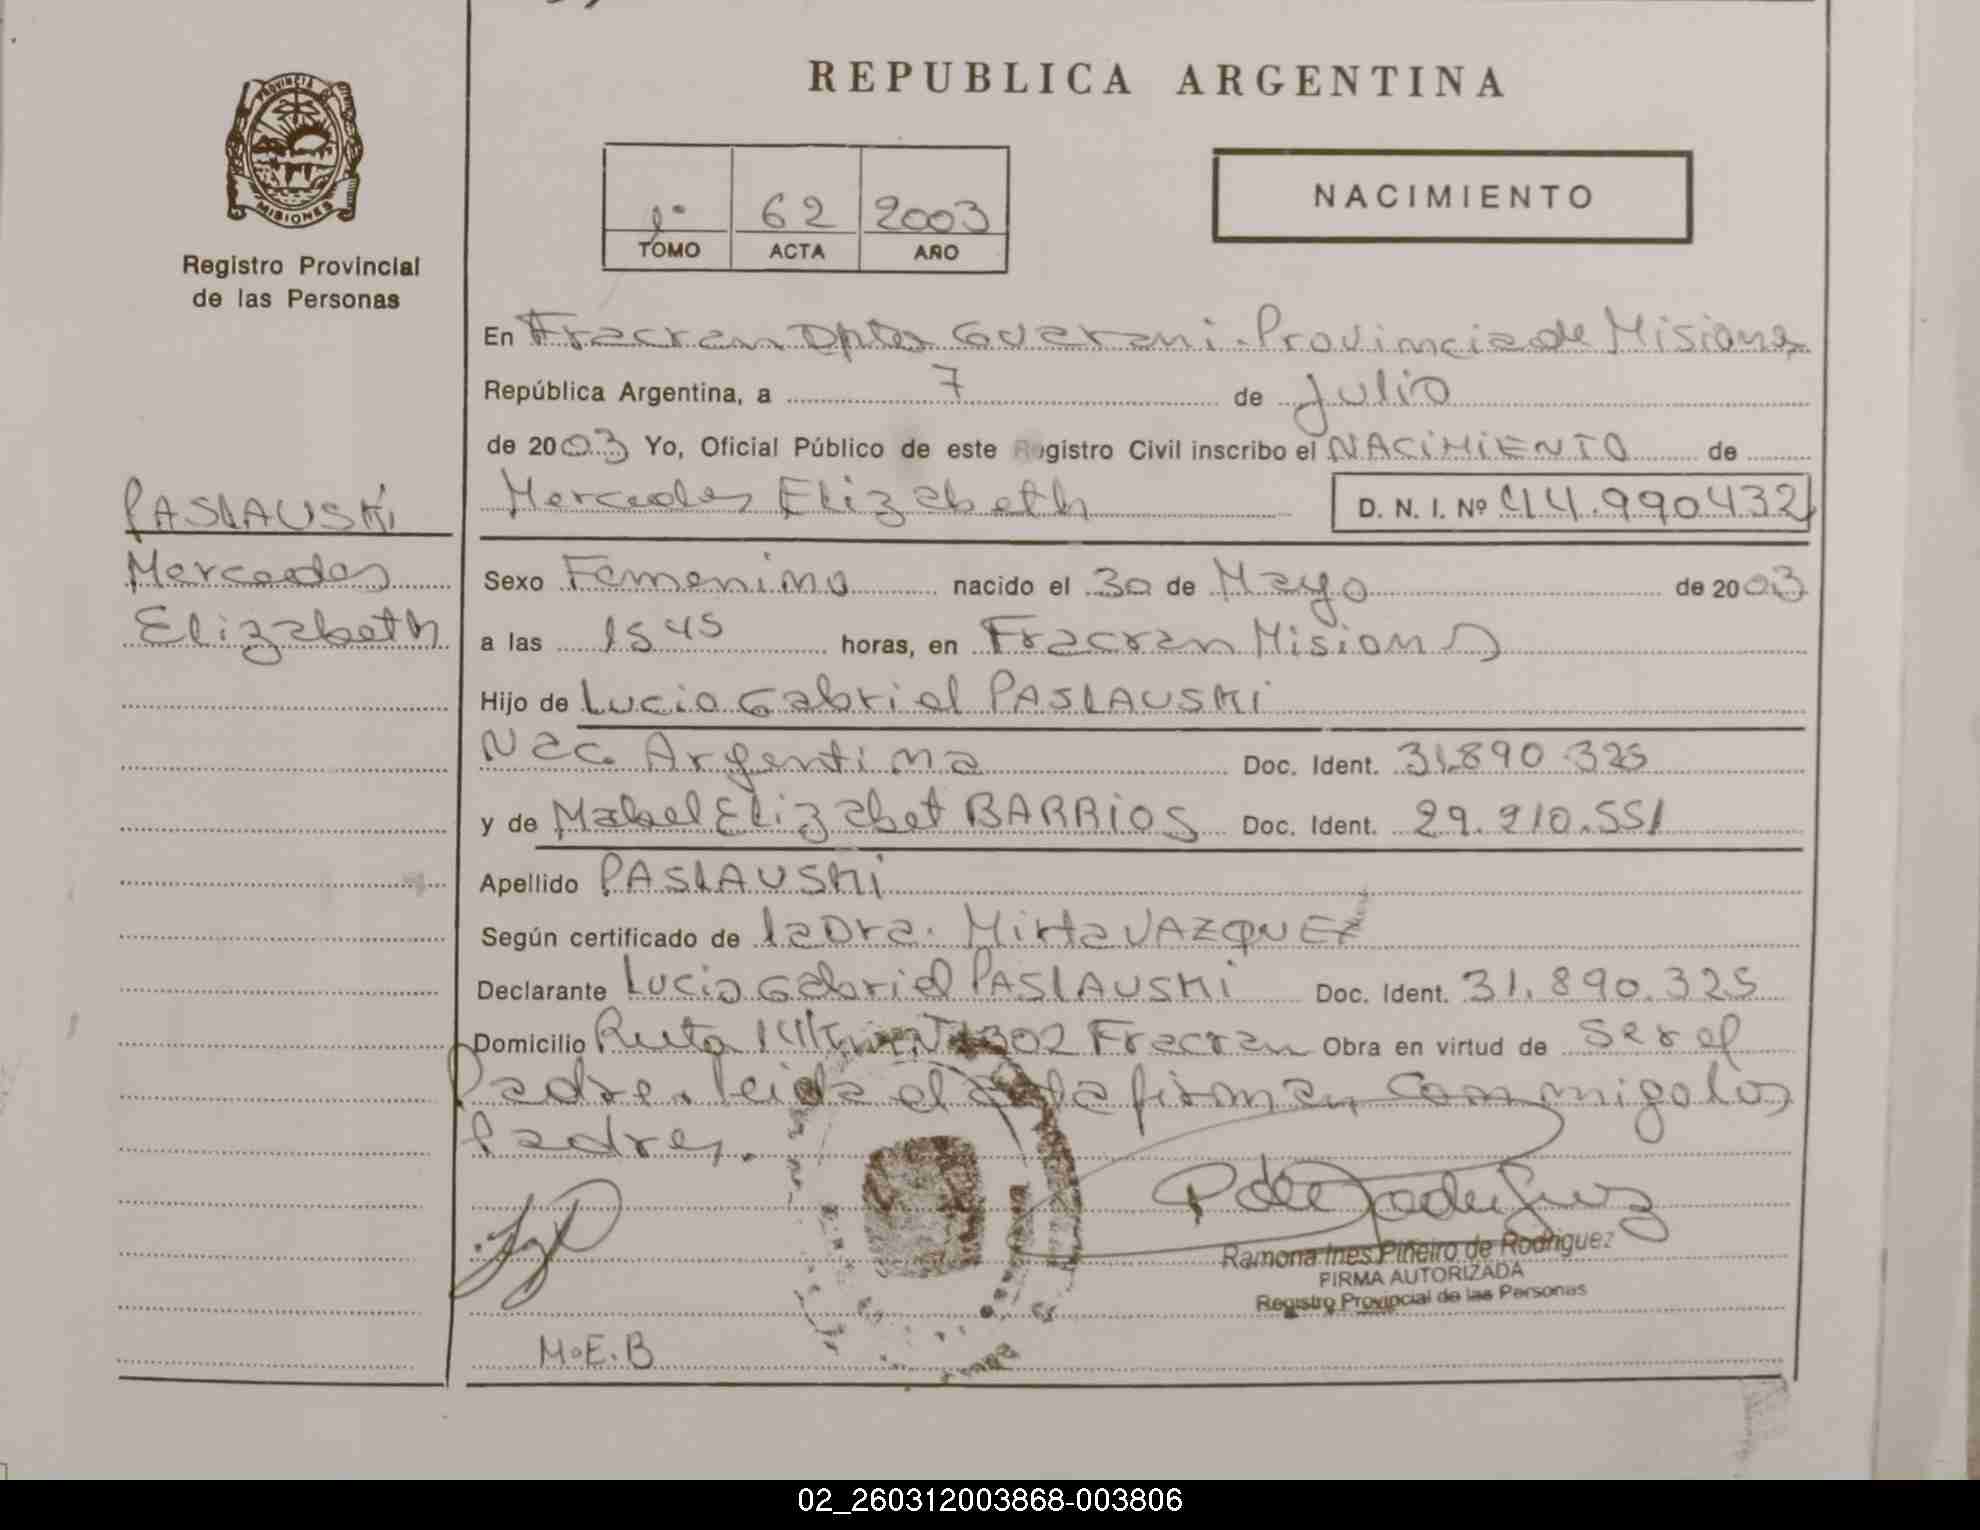 REPUBLICA ARGENTINA
PROVINCIA DE
MISIONES
Registro Provincial
de las Personas
1º 62 2003
TOMO ACTA AÑO
NACIMIENTO
En Fracran Dpto Guarani. Provincia de Misiones
República Argentina, a 7 de Julio
de 2003 Yo, Oficial Público de este Registro Civil inscribo el NACIMIENTO de
Mercedes Elizabeth D. N. I. Nº 44.990432
PASLAUSKI
Mercedes
Elizabeth
Sexo Femenino nacido el 30 de Mayo de 2003
a las 1545 horas, en Fracran Misiones
Hijo de Lucio Gabriel PASLAUSKI
Nac. Argentina Doc. Ident. 31.890.325
y de Mabel Elizabet BARRIOS Doc. Ident. 29.210.551
Apellido PASLAUSKI
Según certificado de la Dra. Mirta VAZQUEZ
Declarante Lucio Gabriel PASLAUSKI Doc. Ident. 31.890.325
Domicilio Ruta 14 1302 Fracran Obra en virtud de ser el
Padre. leida el acta firman conmigo los
Padres.
Ramona Ines Piñeiro de Rodriguez
FIRMA AUTORIZADA
Registro Provincial de las Personas
M.E.B
02_260312003868-003806